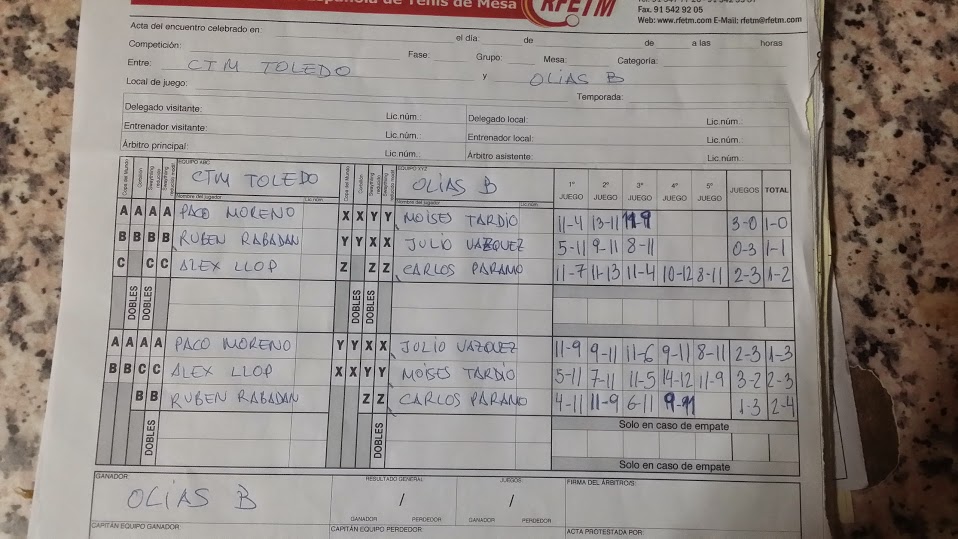 Española de Tenis de Mesa RFETM
Fax. 91 542 92 05
Web: www.rfetm.com E-Mail: rfetm@rfetm.com
Acta del encuentro celebrado en el día: de de a las horas
Competición: Fase: Grupo: Mesa: Categoría:
Entre: CTM TOLEDO y OLIAS B
Local de juego: Temporada:
Delegado visitante: Lic.núm.: Delegado local: Lic.núm.:
Entrenador visitante: Lic.núm.: Entrenador local: Lic.núm.:
Árbitro principal: Lic.núm.: Árbitro asistente: Lic.núm.:
Copa del Mundo Corbillon Swaythling reducido Swaythling EQUIPO ABC CTM TOLEDO Nombre del jugador Lic.núm. Copa del Mundo Corbillon Swaythling reducido Swaythling EQUIPO XYZ OLIAS B Nombre del jugador Lic.núm. 1º JUEGO 2º JUEGO 3º JUEGO 4º JUEGO 5º JUEGO JUEGOS TOTAL
A A A A PACO MORENO X X Y Y MOISES TARDIO 11-4 13-11 11-9 3-0 1-0
B B B B RUBEN RABADAN Y Y X X JULIO VAZQUEZ 5-11 9-11 8-11 0-3 1-1
C C C ALEX LLOP Z Z Z CARLOS PARAMO 11-7 11-13 11-4 10-12 8-11 2-3 1-2
DOBLES DOBLES DOBLES DOBLES
A A A A PACO MORENO Y Y X X JULIO VAZQUEZ 11-9 9-11 11-6 9-11 8-11 2-3 1-3
B B C C ALEX LLOP X X Y Y MOISES TARDIO 5-11 7-11 11-5 14-12 11-9 3-2 2-3
B B RUBEN RABADAN Z Z CARLOS PARAMO 4-11 11-9 6-11 9-11 1-3 2-4
Solo en caso de empate
DOBLES DOBLES
Solo en caso de empate
GANADOR: OLIAS B RESULTADO GENERAL / GANADOR PERDEDOR JUEGOS / GANADOR PERDEDOR FIRMA DEL ÁRBITRO/S:
CAPITÁN EQUIPO GANADOR: CAPITÁN EQUIPO PERDEDOR: ACTA PROTESTADA POR: